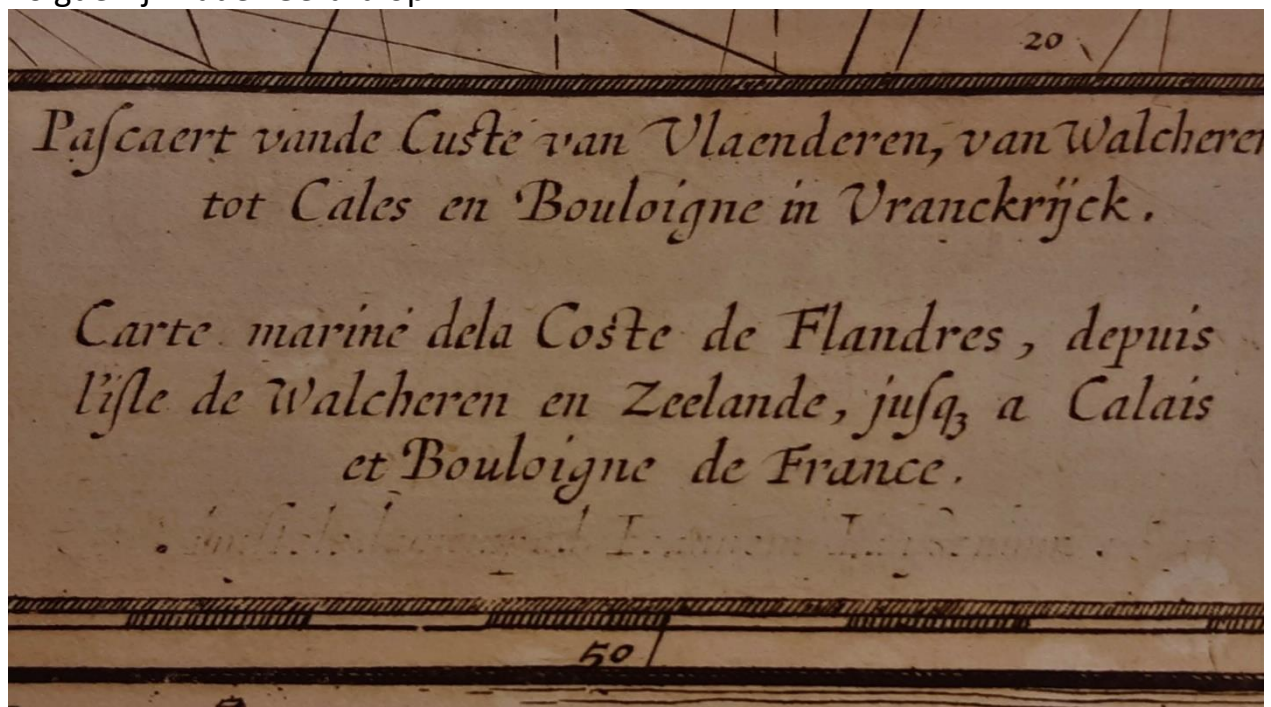 20
Paſcaert vande Cuſte van Vlaenderen, van Walcheren
tot Cales en Bouloigne in Vranckrÿck.
Carte marine dela Coſte de Flandres, depuis
l'iſle de Walcheren en Zeelande, juſqꝫ a Calais
et Bouloigne de France.
50